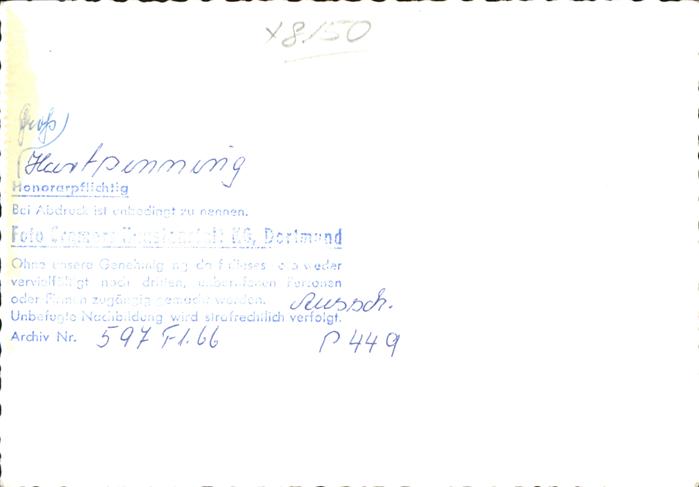 x 8150
(Groß)
Hartpenning
Honorarpflichtig
Bei Abdruck ist unbedingt zu nennen.
Foto Cramers Kunstanstalt KG, Dortmund
Ohne unsere Genehmigung darf dieses Foto weder
vervielfältigt noch dritten, unberufenen Personen
oder Firmen zugängig gemacht werden.
Aussch.
Unbefugte Nachbildung wird strafrechtlich verfolgt.
Archiv Nr. 597 F1.66 P 449